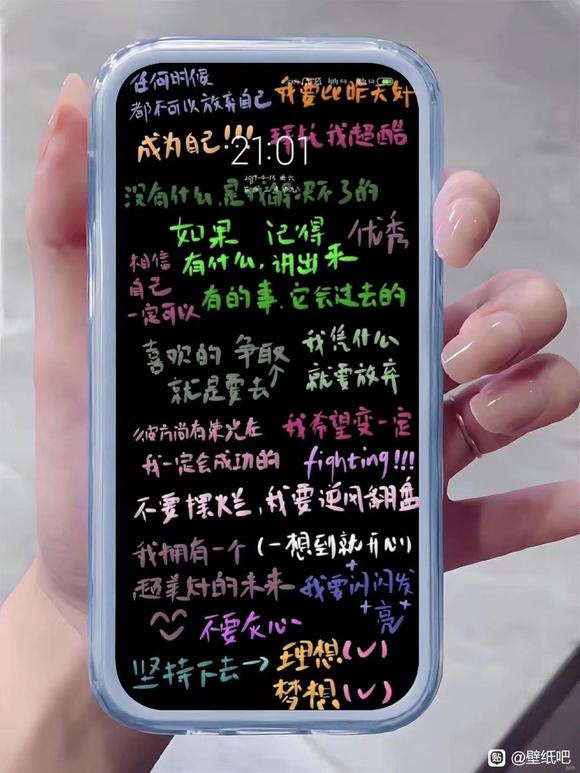 任何时候
都不可以放弃自己
我要比昨天好
成为自己!!!
拜托我超酷
21:01
没有什么,是我解决不了的
如果 记得 优秀
相信
自己
一定可以
有什么,讲出来
有的事,它会过去的
喜欢的 争取
就是要去
我凭什么
就要放弃
彼方尚有荣光在
我希望变一定
我一定会成功的
fighting!!!
不要摆烂,我要逆风翻盘
我拥有一个
(一想到就开心)
超美好的未来
我要闪闪发
亮
不要灰心
坚持下去→
理想(✓)
梦想(✓)
贴 @壁纸吧